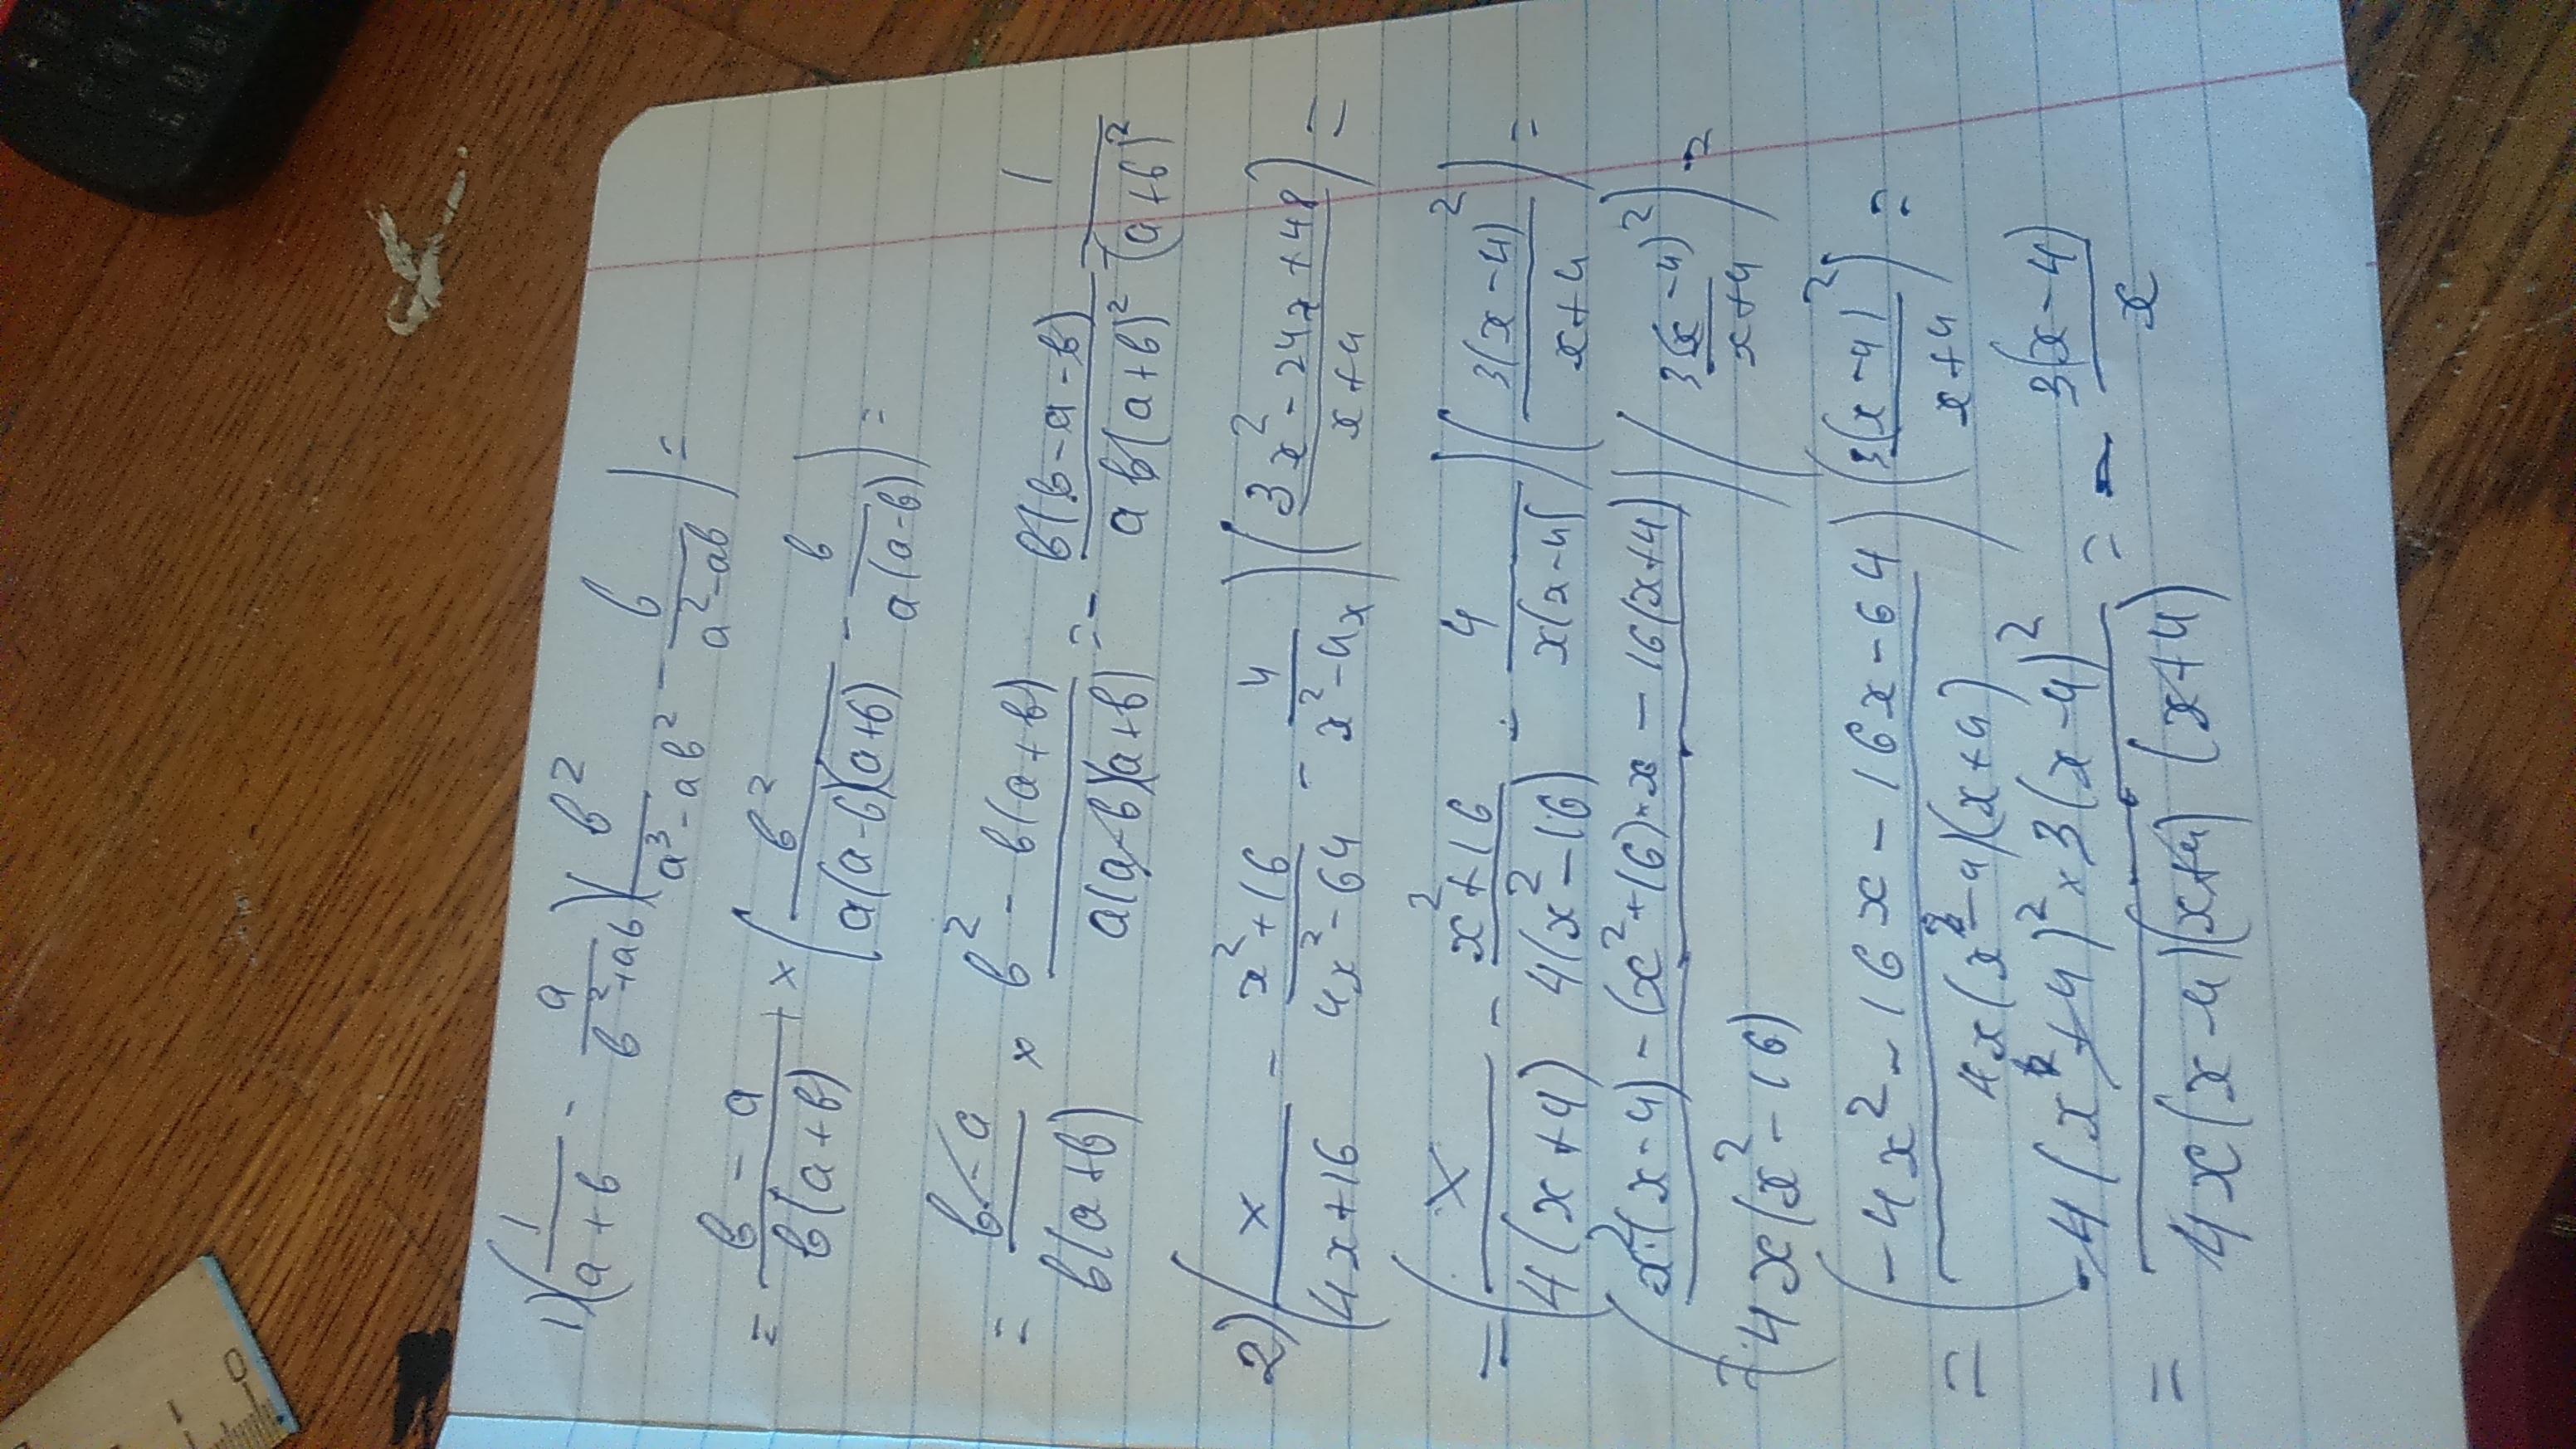 1) (1/(a+b) - a/(b²+ab))(b²/(a³-ab²) - b/(a²-ab)) =
= (b-a)/(b(a+b)) × (b²/(a(a-b)(a+b)) - b/(a(a-b))) =
= (b-a)/(b(a+b)) × (b²-b(a+b))/(a(a-b)(a+b)) = - b(b-a-b)/(ab(a+b)²) = 1/(a+b)²
2) (x/(4x+16) - (x²+16)/(4x²-64) - 4/(x²-4x))((3x²-24x+48)/(x+4)) =
= (x/(4(x+4)) - (x²+16)/(4(x²-16)) - 4/(x(x-4)))(3(x-4)²/(x+4)) =
= ((x²·(x-4)-(x²+16)·x-16(x+4))/(4x(x²-16)))(3(x-4)²/(x+4)) =
= ((-4x²-16x-16x-64)/(4x(x-4)(x+4)))(3(x-4)²/(x+4)) =
= (-4(x+4)²×3(x-4)²)/(4x(x-4)(x+4)(x+4)) = - 3(x-4)/x
0 1